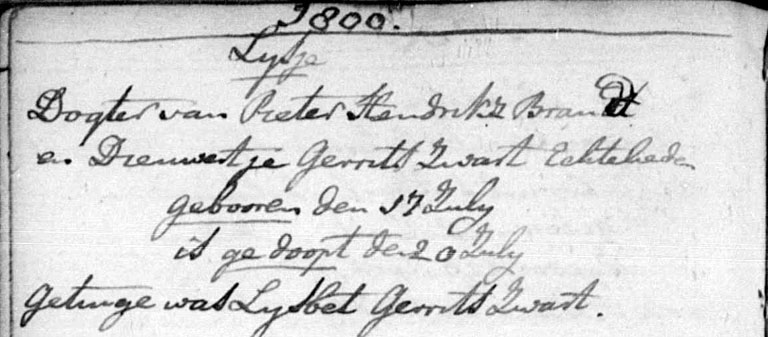 1800.
Lysje
Dogter van Pieter Hendrikz Brandt
en Dieuwertje Gerrits Zwart Echtelieden
gebooren den 17 July
is gedoopt de 20 July
getuige was Lysbet Gerrits Zwart.